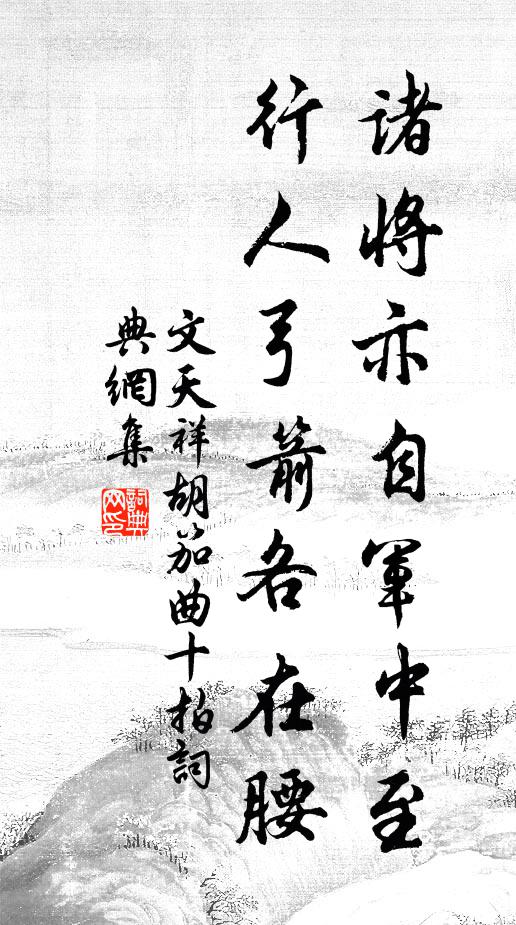 諸將亦自軍中至
行人弓箭各在腰
文天祥胡笳曲十拍詞
典網集
詞典
网印